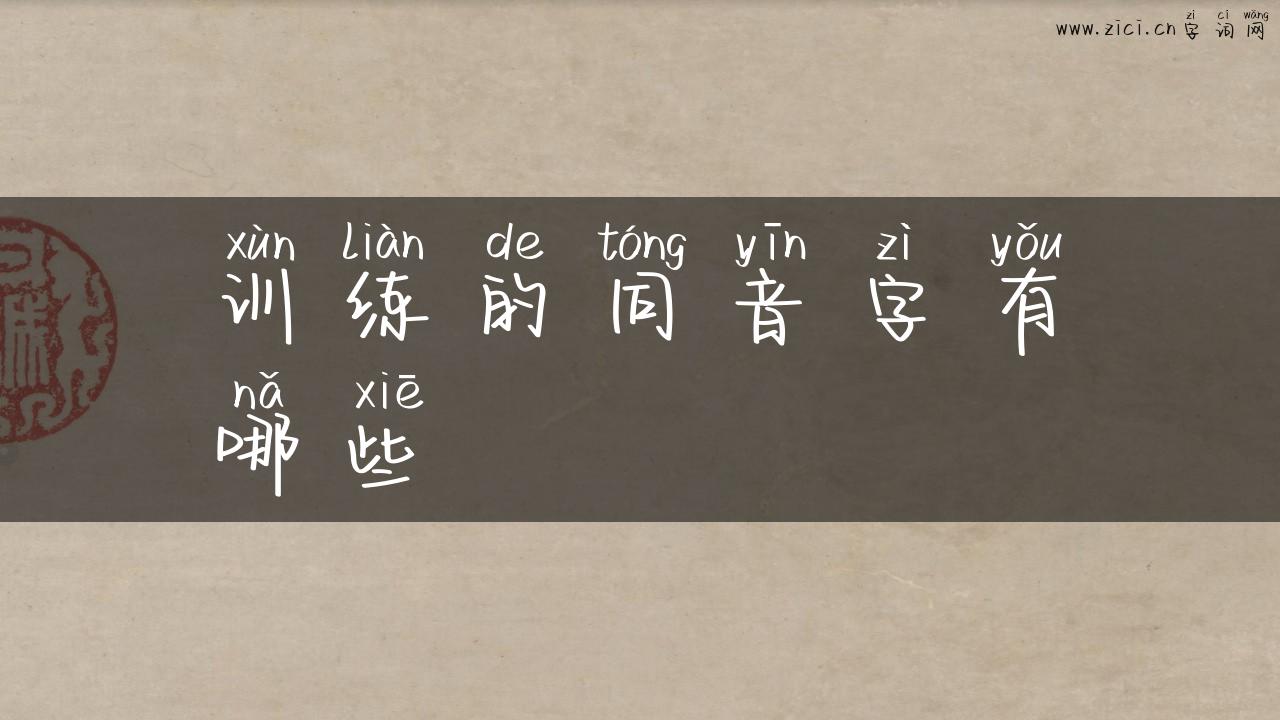 zì cí wǎng
www.zici.cn 字词网
xùn liàn de tóng yīn zì yǒu
训练的同音字有
nǎ xiē
哪些